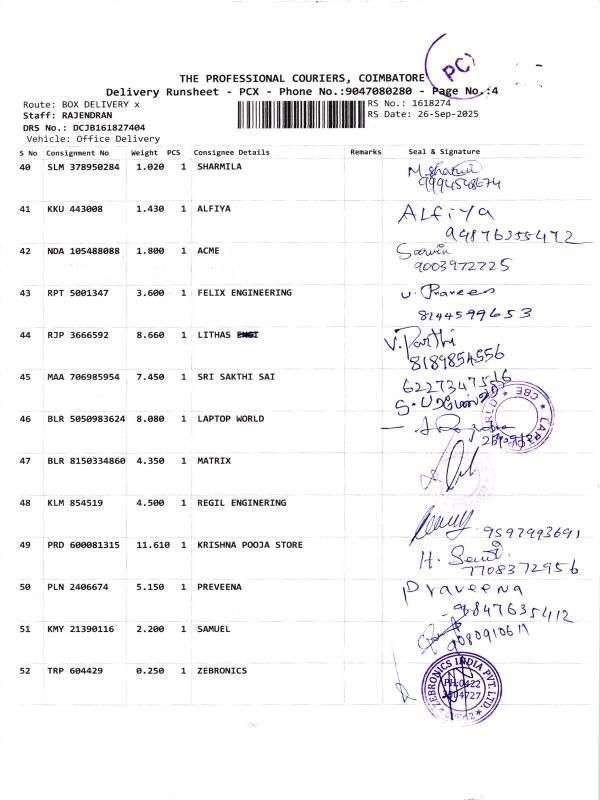 PCX
THE PROFESSIONAL COURIERS, COIMBATORE
Delivery Runsheet - PCX - Phone No.:9047080280 - Page No.:4
Route: BOX DELIVERY x
RS No.: 1618274
Staff: RAJENDRAN
RS Date: 26-Sep-2025
DRS No.: DCJB161827404
Vehicle: Office Delivery
S No Consignment No Weight PCS Consignee Details Remarks Seal & Signature
40 SLM 378950284 1.020 1 SHARMILA
41 KKU 443008 1.430 1 ALFIYA ALFiYA
94876355472
42 NDA 105488088 1.800 1 ACME
9003972725
43 RPT 5001347 3.600 1 FELIX ENGINEERING v. Praveen
8144599653
44 RJP 3666592 8.660 1 LITHAS V. Parthi
8189854556
45 MAA 706985954 7.450 1 SRI SAKTHI SAI
46 BLR 5050983624 8.080 1 LAPTOP WORLD
CBE
47 BLR 8150334860 4.350 1 MATRIX
48 KLM 854519 4.500 1 REGIL ENGINERING
9597993691
49 PRD 600081315 11.610 1 KRISHNA POOJA STORE H.
7708372956
50 PLN 2406674 5.150 1 PREVEENA Praveena
9847635412
51 KMY 21390116 2.200 1 SAMUEL
52 TRP 604429 0.250 1 ZEBRONICS
ZEBRONICS INDIA PVT. LTD.
PH:0422